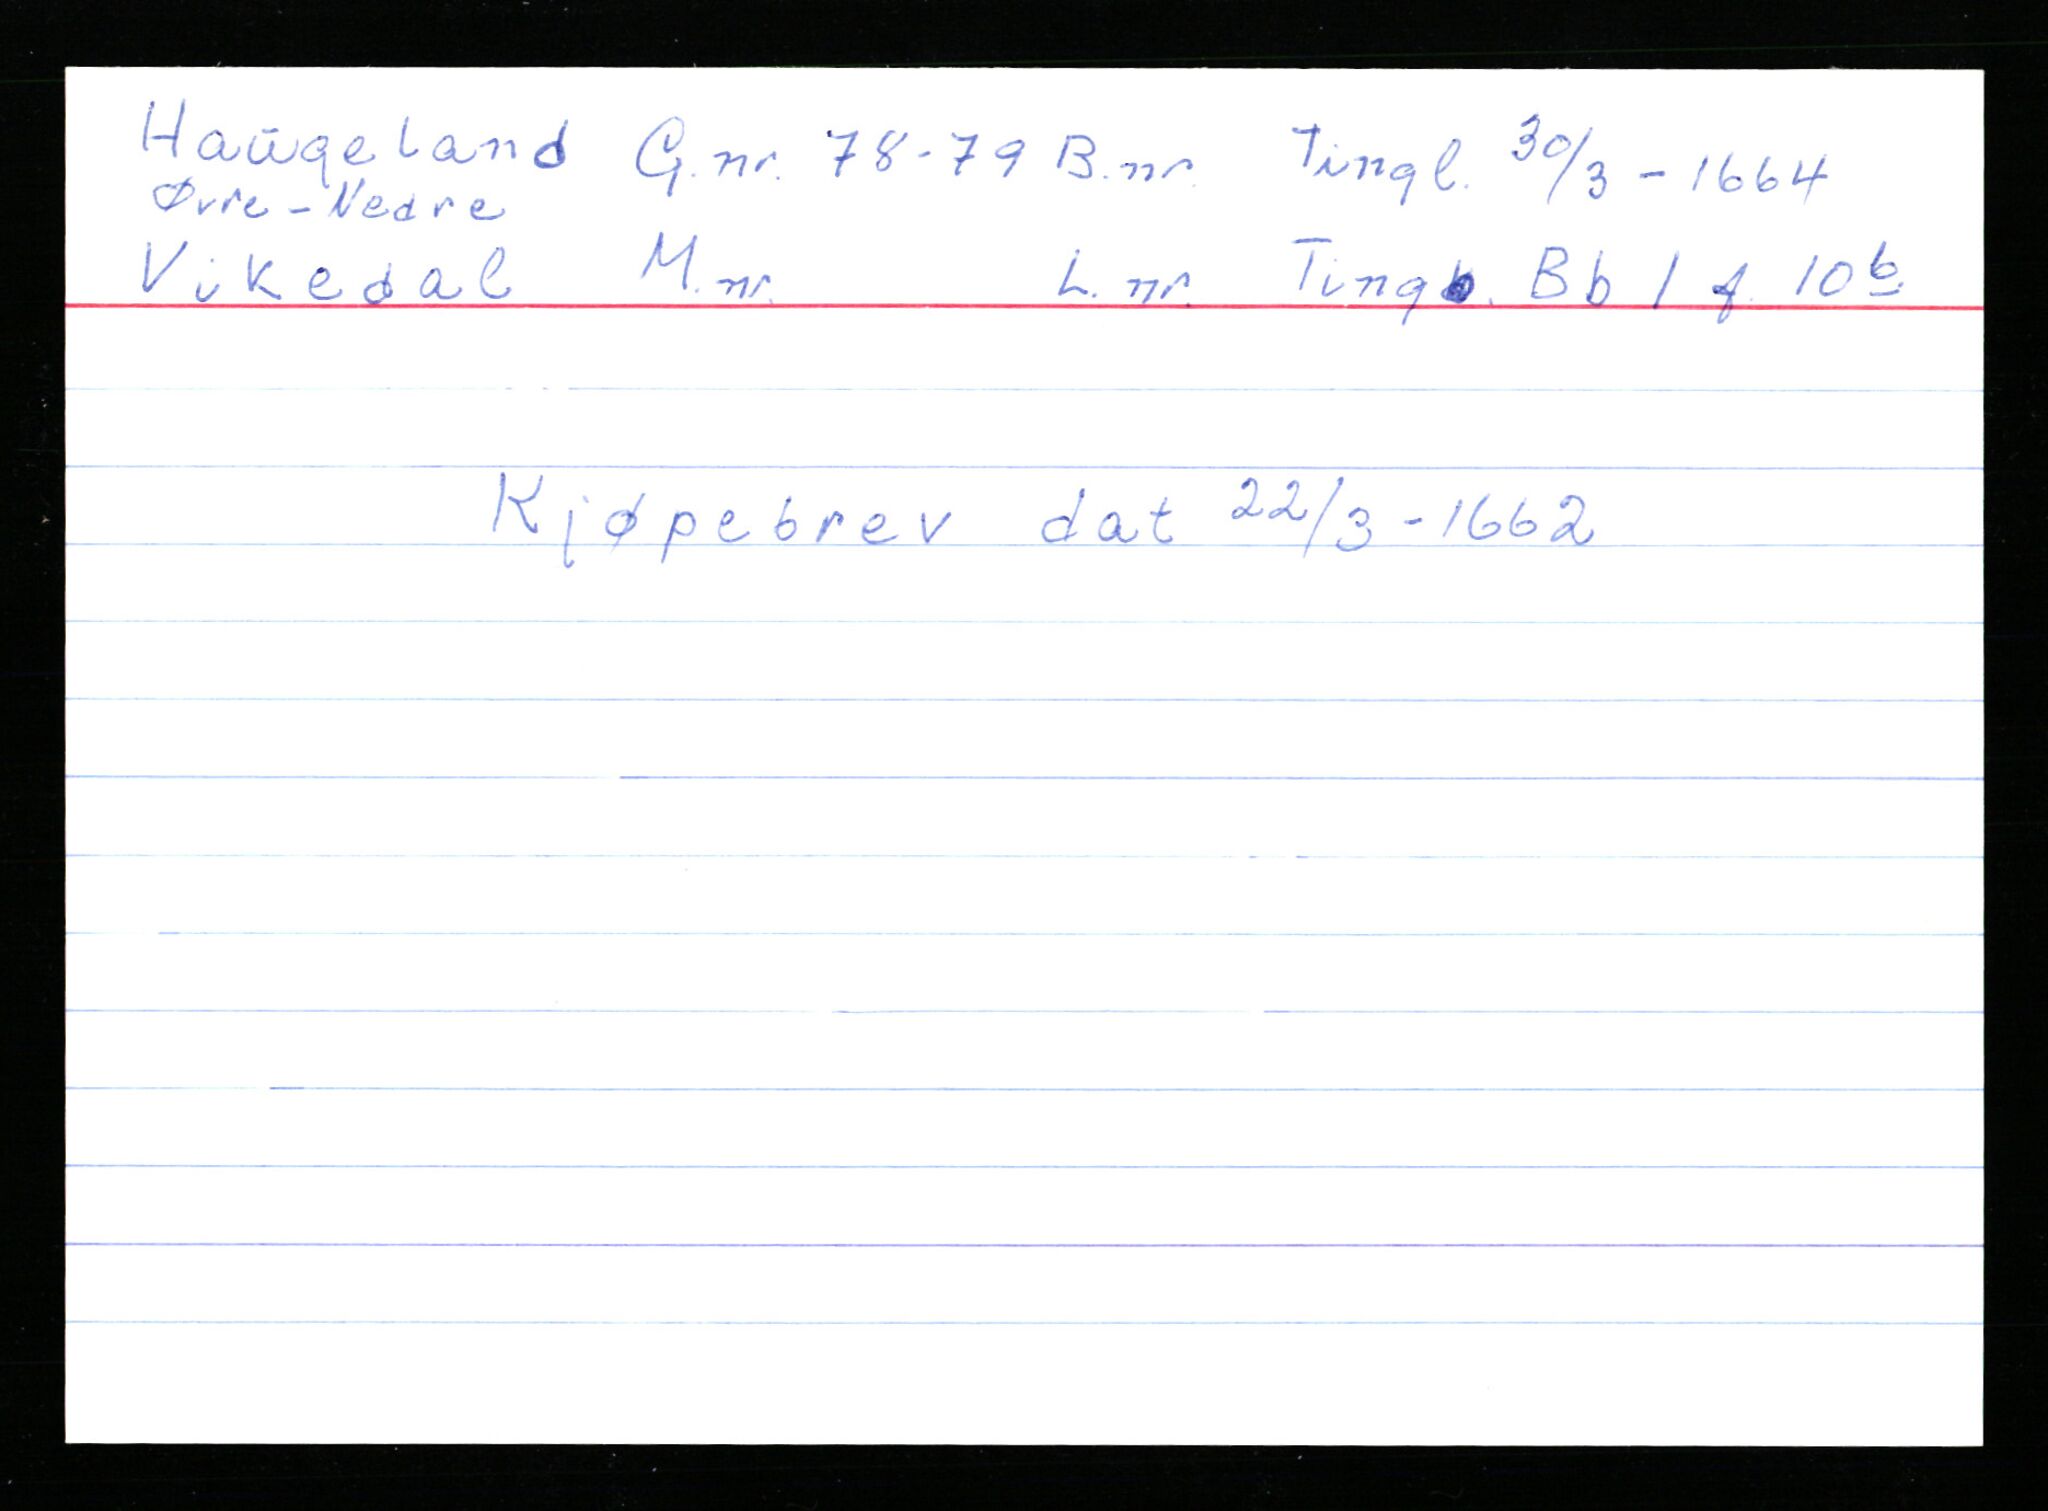 Haugeland G.nr. 78-79 B.nr. Tingl. 30/3 - 1664
Øvre - Nedre
Vikedal M.nr. L.nr. Tingb. Bb 1 f. 10b
Kjøpebrev dat 22/3 - 1662